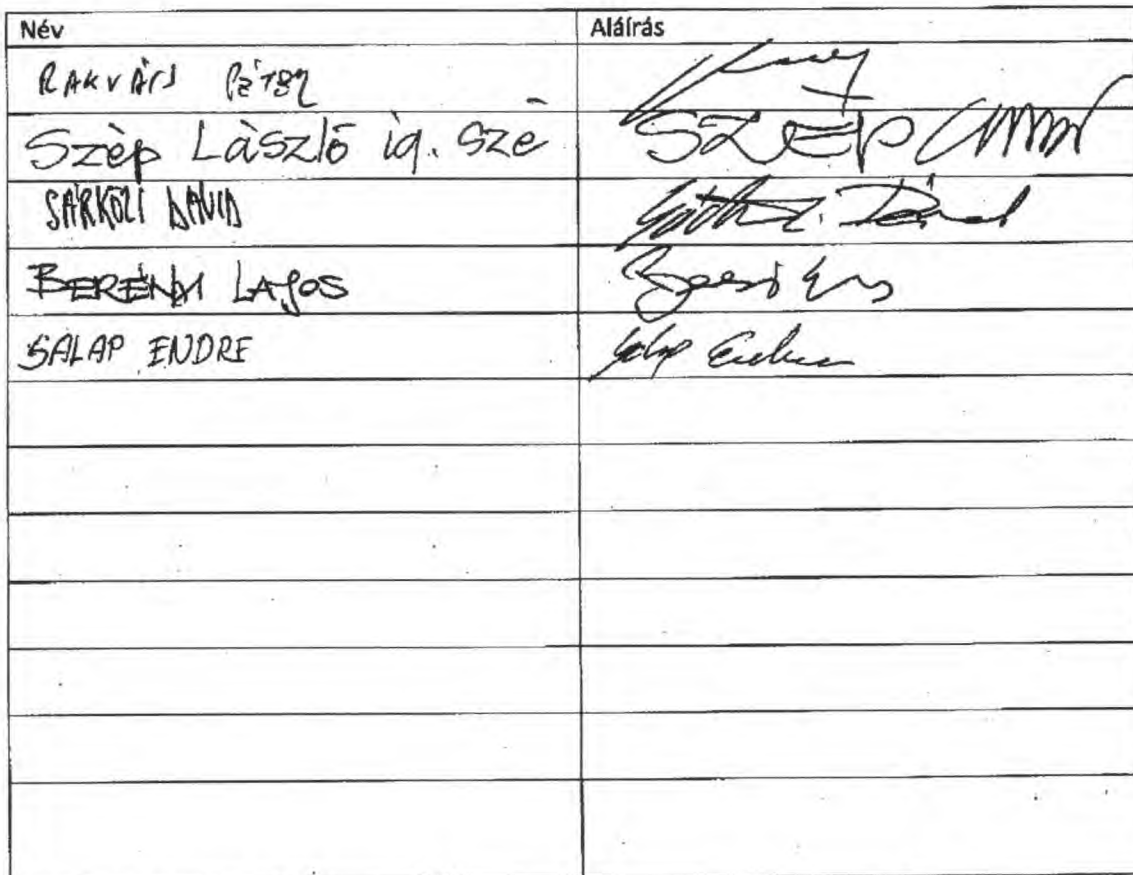 Név Aláírás
RAKVÁCS PÉTER
Szép László ig. Szé SZÉP
SÁRKÖZI DÁVID Dávid
BERÉNYI LAJOS
SALAP ENDRE Salap Endre